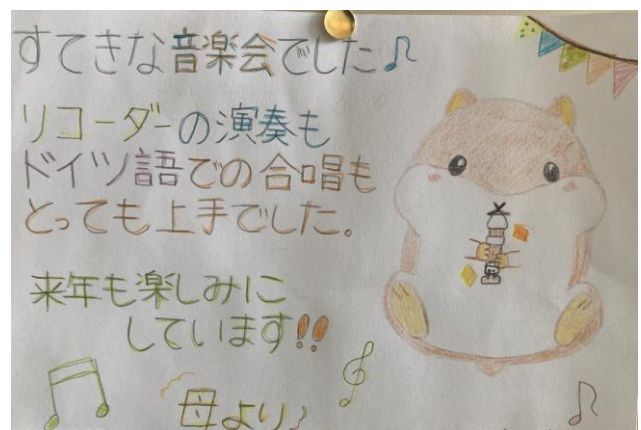 すてきな音楽会でした♪
リコーダーの演奏も
ドイツ語での合唱も
とっても上手でした。
来年も楽しみに
しています!!
母より♪